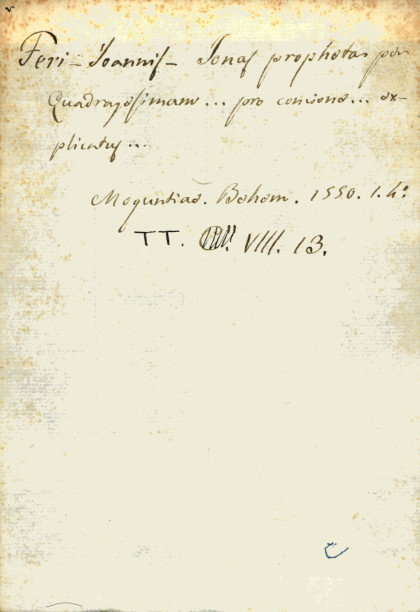 Feri - Ioannis - Ionas propheta per
Quadragesimam... pro concione... ex-
plicatus...
Moguntiae. Behem. 1550. 1. 4°
TT. VIII. 13.